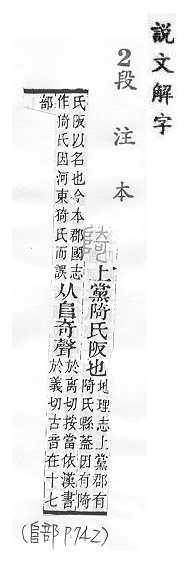 説文解字
2段注本
陭
上黨陭氏阪也
地理志上黨郡有
陭氏縣蓋因有陭
氏阪以名也今本郡國志
作猗氏因河東猗氏而誤
从𨸏奇聲
於離切按當依漢書
於義切古音在十七
部
(𨸏部 P.742)